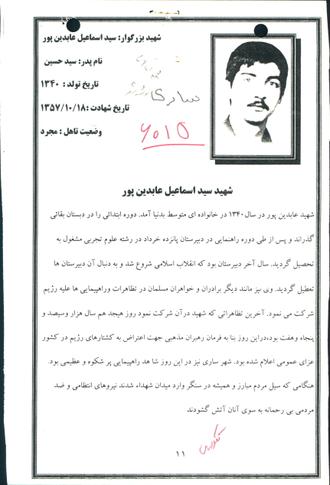 شهید بزرگوار: سید اسماعیل عابدین پور
نام پدر: سید حسین
تاریخ تولد : ۱۳۴۰
ساری
تاریخ شهادت :۱۳۵۷/۱۰/۱۸
وضعیت تاهل : مجرد
۶۰۱۵
شهید سید اسماعیل عابدین پور
شهید عابدین پور در سال ۱۳۴۰ در خانواده ای متوسط بدنیا آمد. دوره ابتدائی را در دبستان بقائی
گذراند و پس از طی دوره راهنمایی در دبیرستان پانزده خرداد در رشته علوم تجربی مشغول به
تحصیل گردید. سال آخر دبیرستان بود که انقلاب اسلامی شروع شد و به دنبال آن دبیرستان ها
تعطیل گردید. وی نیز مانند دیگر برادران و خواهران مسلمان در تظاهرات وراهپیمایی ها علیه رژیم
شرکت می نمود. آخرین تظاهراتی که شهید درآن شرکت نمود روز هیجدهم سال هزار وسیصد و
پنجاه وهفت بود،دراین روز بنا به فرمان رهبران مذهبی جهت اعتراض به کشتارهای رژیم در کشور
عزای عمومی اعلام شده بود. شهر ساری نیز در این روز شا هد راهپیمایی پر شکوه و عظیمی بود.
هنگامی که سیل مردم مبارز و همیشه در سنگر وارد میدان شهداء شدند نیروهای انتظامی و ضد
مردمی بی رحمانه به سوی آنان آتش گشودند
۱۱